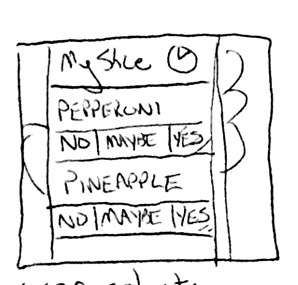 My Slice
PEPPERONI
NO MAYBE YES
PINEAPPLE
NO MAYBE YES